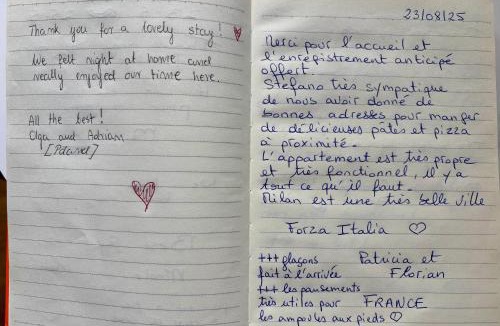 Thank you for a lovely stay!
We felt right at home and
really enjoyed our time here.
All the best!
Olga and Adrian
[Poland]
23/08/25
Merci pour l'accueil et
l'enregistrement anticipé
offert.
Stefano très sympatique
de nous avoir donné de
bonnes adresses pour manger
de délicieuses pates et pizza
à proximité.
L'appartement est très propre
et très fonctionnel, il y a
tout ce qu'il faut.
Milan est une très belle ville
Forza Italia ♡
+++ glaçons
fait à l'arrivée
+++ les pansements
très utiles pour
les ampoules aux pieds ♡
Patricia et
Florian
FRANCE